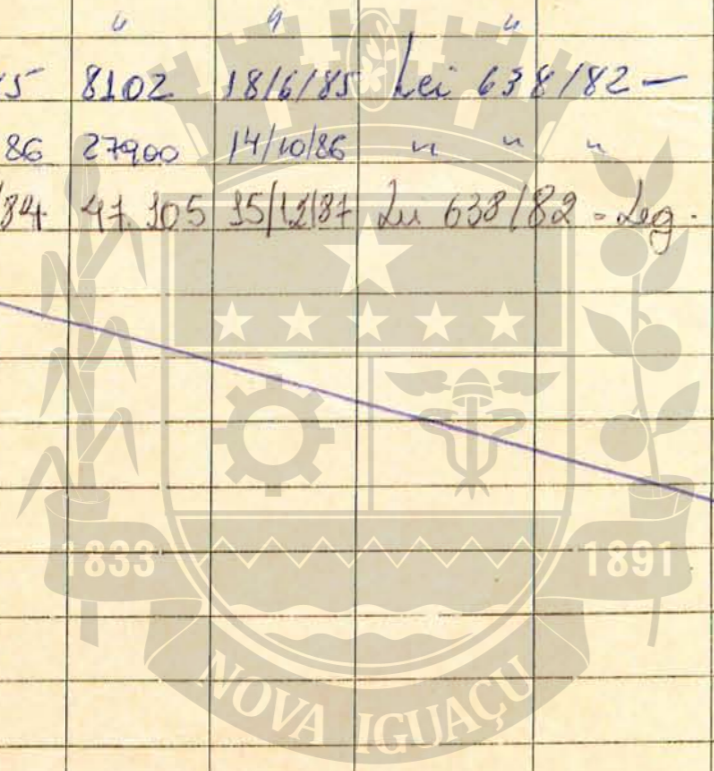 " " "
5 8102 18/6/85 Lei 638/82 —
86 27900 14/10/86 " " "
/84 47.105 15/12/87 Lei 638/82 - Leg.
1833 1891
NOVA IGUAÇU